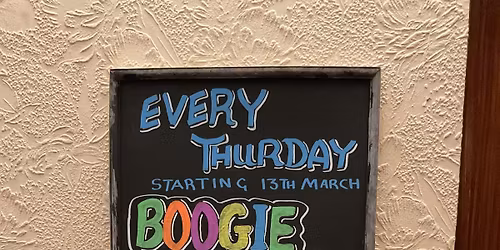 EVERY
THURDAY
STARTING 13TH MARCH
BOOGIE